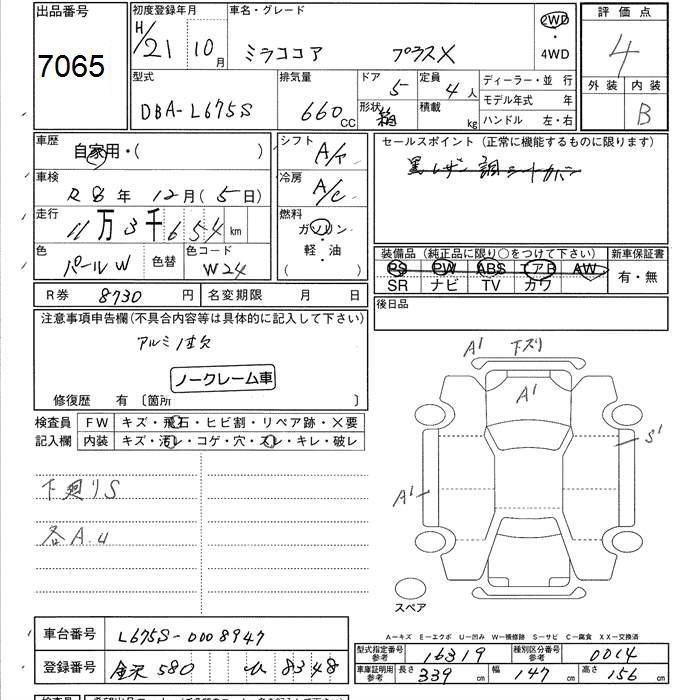 出品番号
7065
初度登録年月
H/21 10月
車名・グレード
ミラココア プラスX
2WD
・
4WD
評価点
4
外装 内装
B
型式
DBA-L675S
排気量
660 CC
ドア
5
形状
定員
4人
積載
kg
ディーラー・並行
モデル年式 年
ハンドル 左・右
車歴
自家用・( )
車検
R8年 12月(5日)
走行
11万3千654km
色
パールW
色替
色コード
W24
シフト
A/T
冷房
A/C
燃料
ガソリン
・
軽・油
( )
セールスポイント (正常に機能するものに限ります)
黒レザー調シートカバー
装備品 (純正品に限り○をつけて下さい)
PS PW ABS アB AW
SR ナビ TV カワ
新車保証書
有・無
R券 8730 円
名変期限 月 日
後日品
注意事項申告欄(不具合内容等は具体的に記入して下さい)
アルミ1本欠
ノークレーム車
修復歴 有 〔箇所 〕
検査員
記入欄
FW キズ・飛石・ヒビ割・リペア跡・×要
内装 キズ・汚レ・コゲ・穴・スレ・キレ・破レ
下廻りS
各A.U
A1 下スリ
A1
S1
A1
スペア
A−キズ E−エクボ U−凹み W−補修跡 S−サビ C−腐食 XX−交換済
車台番号 L675S-0008947
登録番号 金沢 580 い 8348
型式指定番号
参考
16319
種別区分番号
参考
0014
車庫証明用
参考
長さ 339 cm
幅 147 cm
高さ 156 cm